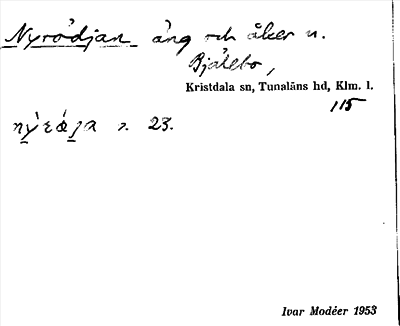 Nyrödjan äng och åker n.
Bjälebo,
Kristdala sn, Tunaläns hd, Klm. l.
115
23.
Ivar Modéer 1953